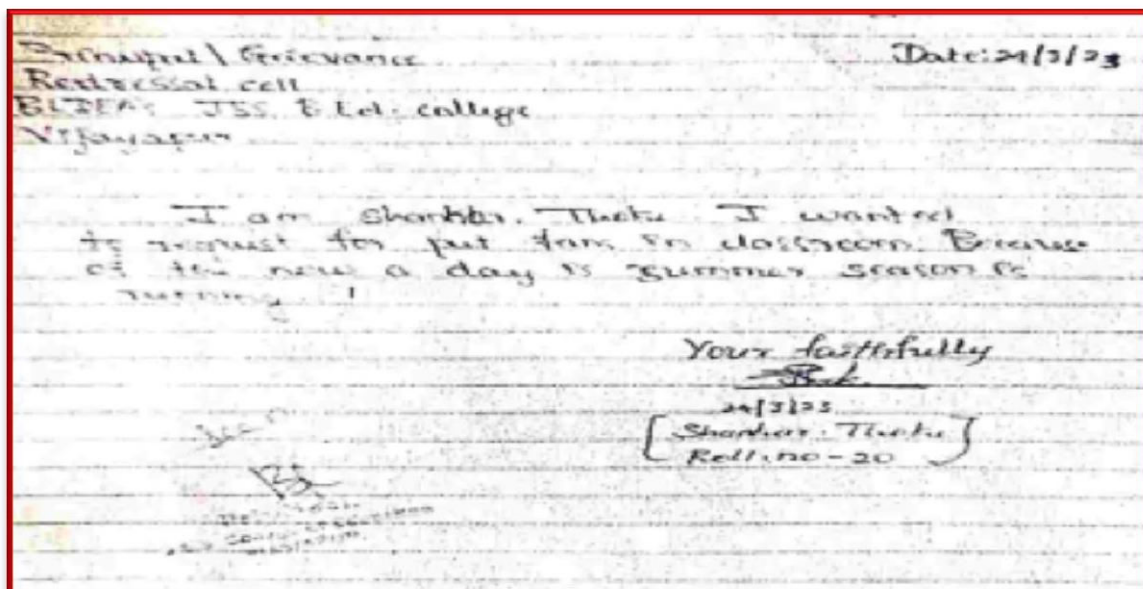 Principal / Grievance
Date: 24/3/23
Redressal cell
BLDEA's JSS. B.Ed. college
Vijayapur
I am Shankar. Thote I wanted
to request for put fans in classroom. Because
of the now a day is summer season is
running !
Your faithfully
24/3/23
[Shankar. Thote]
Roll. no - 20